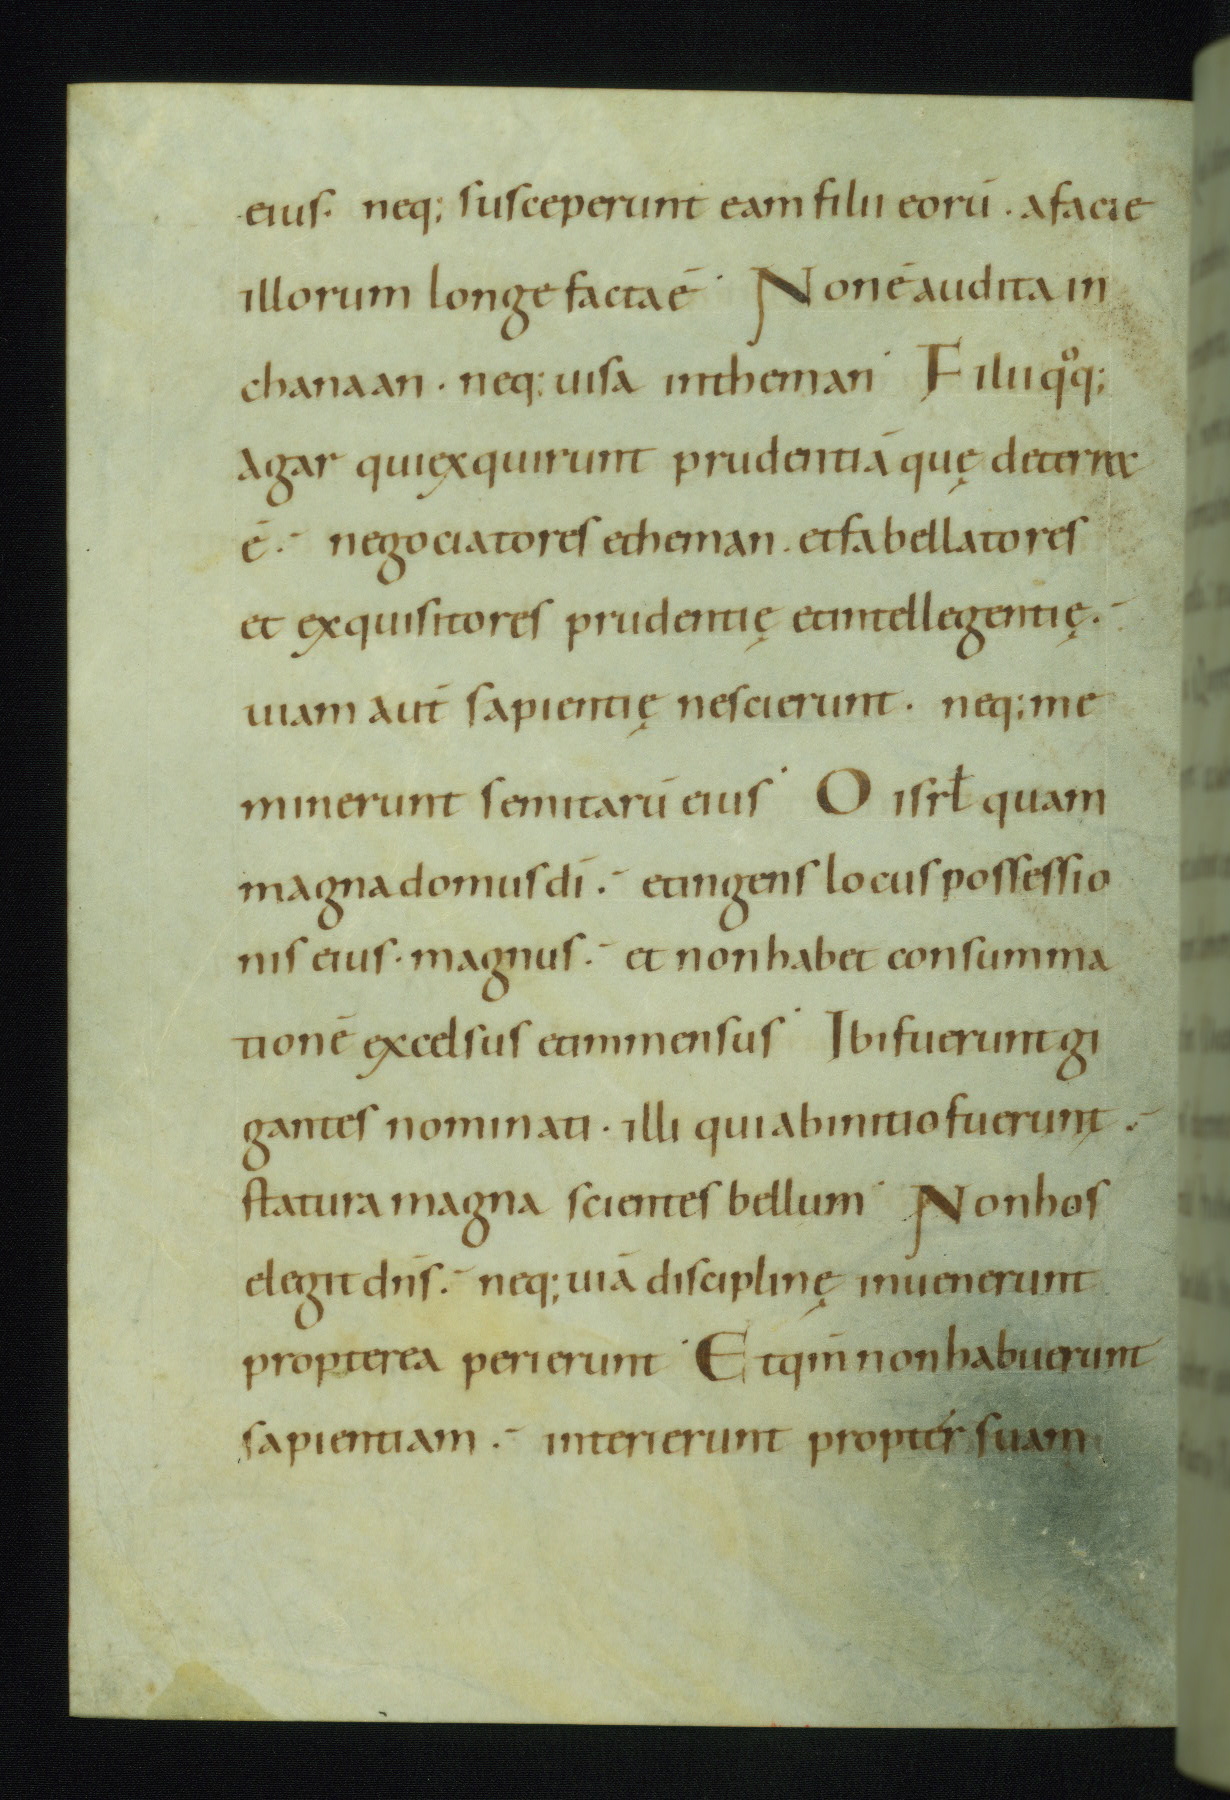 eius· neq; susceperunt eam filii eorū · a facie
illorum longe facta ē· Non ē audita in
chanaan · neq; uisa in theman· Filii qͦq;
agar qui exquirunt prudentiā quę de terra
ē·- negociatores etheman · et fabellatores
et exquisitores prudentię et intellegentię·-
uiam aūt sapientię nescierunt · neq; me
minerunt semitarū eius· O isrł quam
magna domus dī·- et ingens locus possessio
nis eius· magnus·- et non habet consumma
tionē excelsus et immensus· Ibi fuerunt gi
gantes nominati · illi qui ab initio fuerunt·-
statura magna scientes bellum· Non hos
elegit dn̄s·- neq; uiā disciplinę inuenerunt
propterea perierunt· Et qm̄ non habuerunt
sapientiam·- interierunt propter suam